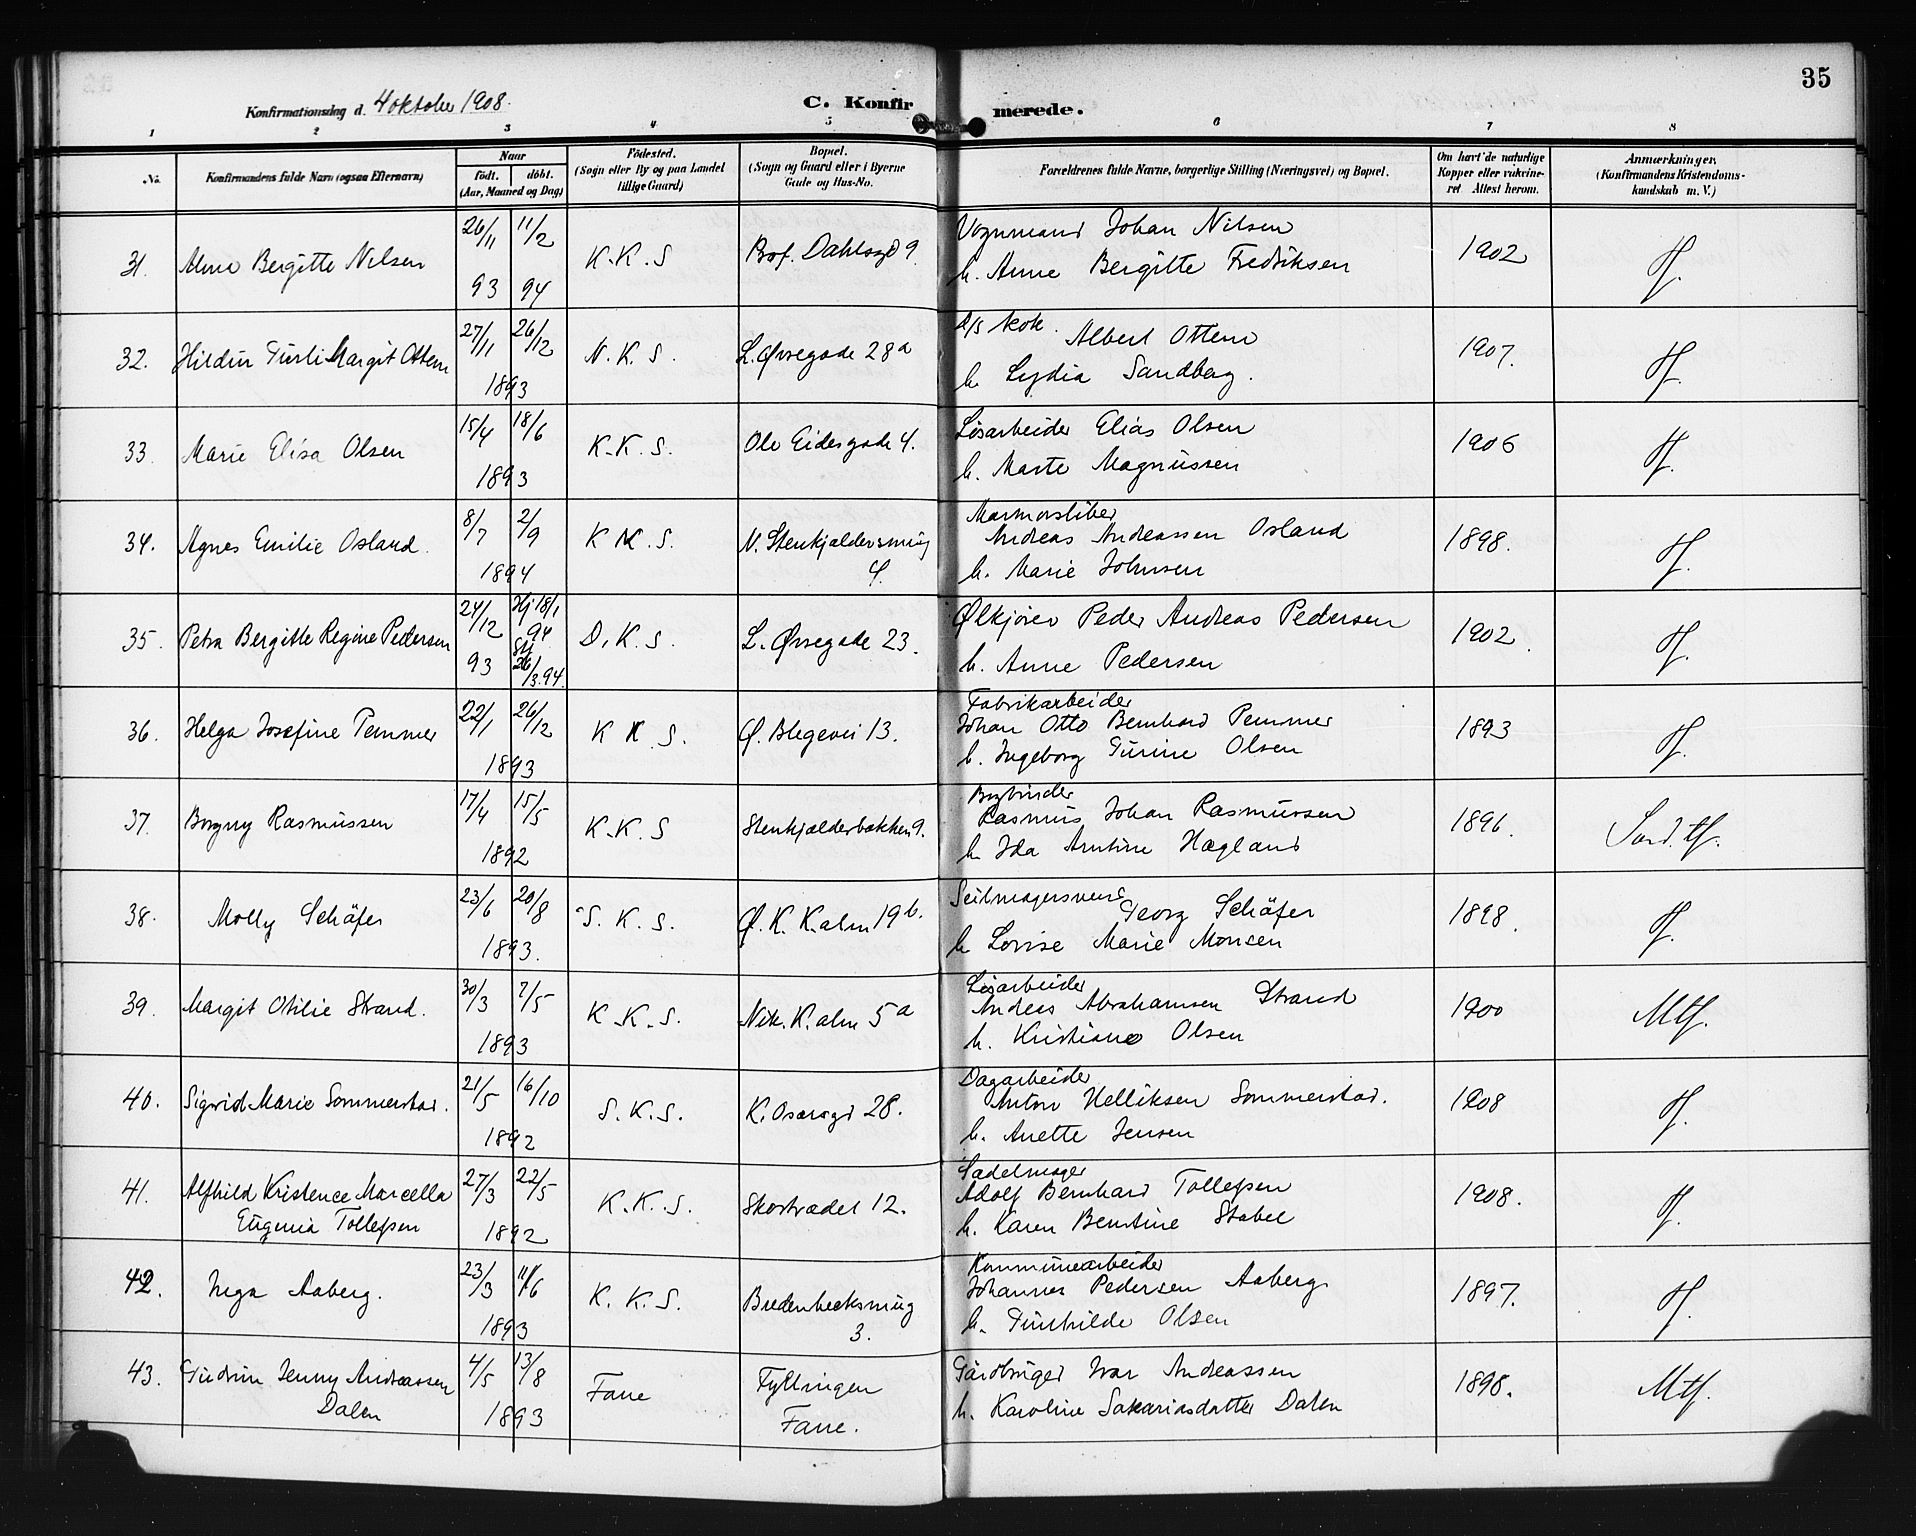 35
Konfirmationsdag d. 4 oktober 1908.
C. Konfirmerede.
1 2 3 4 5 6 7 8
No. Konfirmandens fulde Navn (ogsaa Efternavn) Naar født. døbt. (Aar, Maaned og Dag) Fødested. (Sogn eller By og paa Landet tillige Gaard) Bopæl. (Sogn og Gaard eller i Byerne Gade og Hus-No. Forældrenes fulde Navne, borgerlige Stilling (Næringsvei) og Bopæl. Om havt de naturlige Kopper eller vakcineret Attest herom. Anmærkninger. (Konfirmandens Kristendomskundskab m. V.)
31. Alma Bergitte Nilsen 26/11 93 11/2 94 K.K.S Prof. Dahlsgd 9. Vognmand Johan Nilsen
h. Anne Bergitte Fredriksen 1902 tf.
32. Hildur Turli Margit Ottem 27/11 26/12 1893 N.K.S. L. Øvregade 28a d/s kok. Albert Ottem
h. Lydia Sandberg. 1907. tf.
33. Marie Elisa Olsen 15/4 18/6 1893 K.K.S. Ole Eidesgade 4. Løsarbeider Elias Olsen
h. Marte Magnussen 1906 tf.
34. Agnes Emilie Osland. 8/7 2/9 1894 K K.S. N. Stenkjeldersmug 4. Marmorsliber
Andreas Andreassen Osland
h. Marie Johnsen 1898. tf.
35. Petra Bergitte Regine Pedersen 24/12 93 Hj 18/1 94 Stf 26/3.94. D.K.S. L. Øvregade 23. Ølkjører Peder Andreas Pedersen
h. Anne Pedersen 1902. tf.
36. Helga Josefine Pemmer 22/1 26/12 1893 K K.S. Ø. Blegevei 13. Fabrikarbeider
Johan Otto Bernhard Pemmer
h. Ingeborg Turine Olsen 1893 tf.
37. Borgny Rasmussen 17/4 15/5 1892 K.K.S Stenkjelderbakken 9. Bogbinder
Rasmus Johan Rasmussen
h Ida Arntine Hægland 1896. Særd. tf.
38. Molly Schäfer 23/6 20/8 1893. S.K.S. Ø. K. K.alm 19b. Seilmagersvend
Georg Schäfer
h Lovise Marie Monsen 1898. tf.
39. Margit Otilie Strand. 30/3 7/5 1893 K.K.S. Nik. K.alm 5a Løsarbeider
Anders Abrahamsen Strand
h. Kristiane Olsen 1900 Mtf.
40. Sigvid Marie Sommerstad. 21/5 16/10 1892 S.K.S. K. Oscarsgd 28. Dagarbeider
Anton Helliksen Sommerstad.
h. Anette Jensen 1908 tf.
41. Alfhild Kristence Marcella
Eugenia Tollefsen 27/3 22/5 1892 K.K.S. Skostrædet 12. Sadelmager
Adolf Bernhard Tollefsen
h. Karen Bentine Stabel 1908. tf.
42. Inga Aaberg. 23/3 11/6 1893 K.K.S. Bredenbecksmug 3. Kommunearbeider
Johannes Pedersen Aaberg
h. Gunhilde Olsen 1897. tf.
43. Gudrun Jenny Andreassen
Dalen 4/5 13/8 1893 Fane Fyllingen
Fane. Gårdbruger Ivar Andreassen
h. Karoline Sakariasdatter Dalen 1898. Mtf.